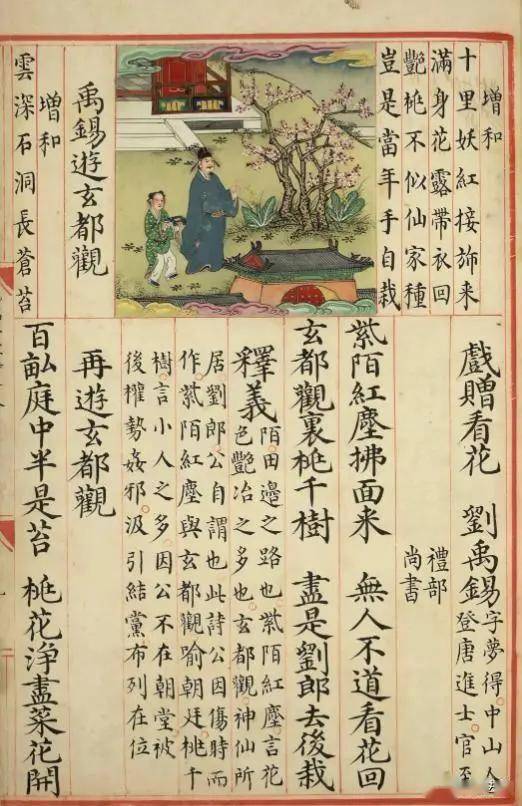 增和
十里妖紅接斾来
滿身花露帶衣回
艷桃不似仙家種
豈是當年手自栽
禹錫遊玄都觀
增和
雲深石洞長蒼苔
戲贈看花
劉禹錫字夢得。中山人
登唐進士。官至
禮部
尚書
紫陌紅塵拂面来 無人不道看花回
玄都觀裏桃千樹 盡是劉郎去後栽
釋義陌。田邊之路也。紫陌紅塵。言花
色艷冶之多也。玄都觀。神仙所
居。劉郎。公自謂也。此詩公因傷時而
作。紫陌紅塵與玄都觀喻朝廷。桃千
樹。言小人之多。因公不在朝堂。被
後權勢姦邪。汲引結黨。布列在位
再遊玄都觀
百畝庭中半是苔 桃花淨盡菜花開